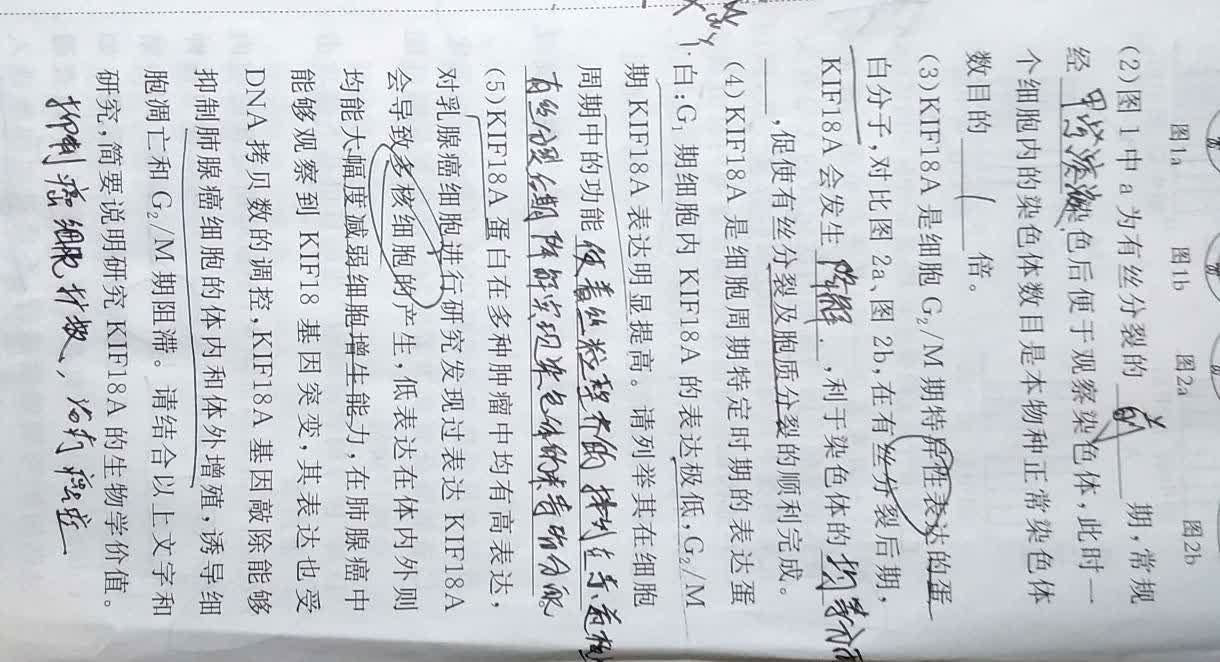 图1a 图1b 图2a 图2b
(2)图1中a为有丝分裂的 前 期,常规
经 甲紫溶液 染色后便于观察染色体,此时一
个细胞内的染色体数目是本物种正常染色体
数目的 1 倍。
(3)KIF18A是细胞G₂/M期特异性表达的蛋
白分子,对比图2a、图2b,在有丝分裂后期,
KIF18A会发生 降解 ,利于染色体的 均等分配
,促使有丝分裂及胞质分裂的顺利完成。
(4)KIF18A是细胞周期特定时期的表达蛋
白:G₁期细胞内KIF18A的表达极低,G₂/M
期KIF18A表达明显提高。请列举其在细胞
周期中的功能 使着丝粒整齐的排列在赤道板
有丝分裂后期降解实现染色体的平均分配
(5)KIF18A蛋白在多种肿瘤中均有高表达,
对乳腺癌细胞进行研究发现过表达KIF18A
会导致多核细胞的产生,低表达在体内外则
均能大幅度减弱细胞增生能力,在肺腺癌中
能够观察到KIF18基因突变,其表达也受
DNA拷贝数的调控,KIF18A基因敲除能够
抑制肺腺癌细胞的体内和体外增殖,诱导细
胞凋亡和G₂/M期阻滞。请结合以上文字和
研究,简要说明研究KIF18A的生物学价值。
抑制癌细胞扩散、治疗癌症